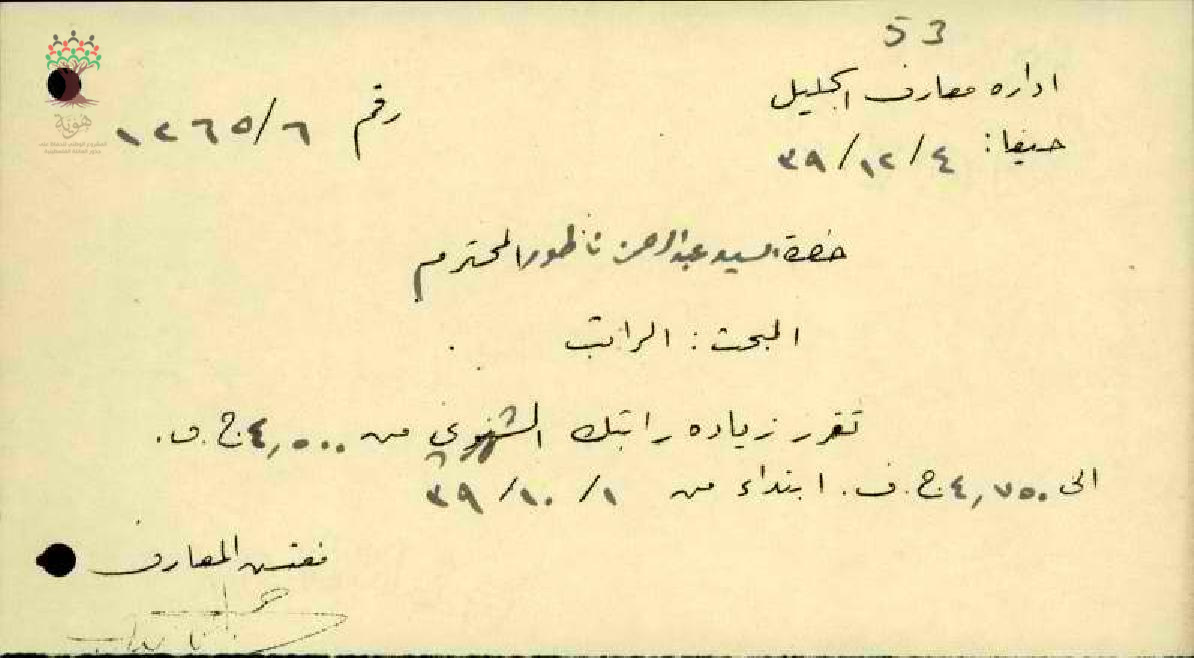 53
اداره معارف الجليل
رقم ١٢٦٥/٦
حيفا: ٤/١٢/٣٩
حضرة السيد عبدالرحمن ناطور المحترم
المبحث: الراتب
تقرر زياده راتبك الشهري من ٤,٥٠٠ ج.ف.
الى ٤,٧٥٠ ج.ف. ابتداء من ١/١٠/٣٩
مفتش المعارف
هوية